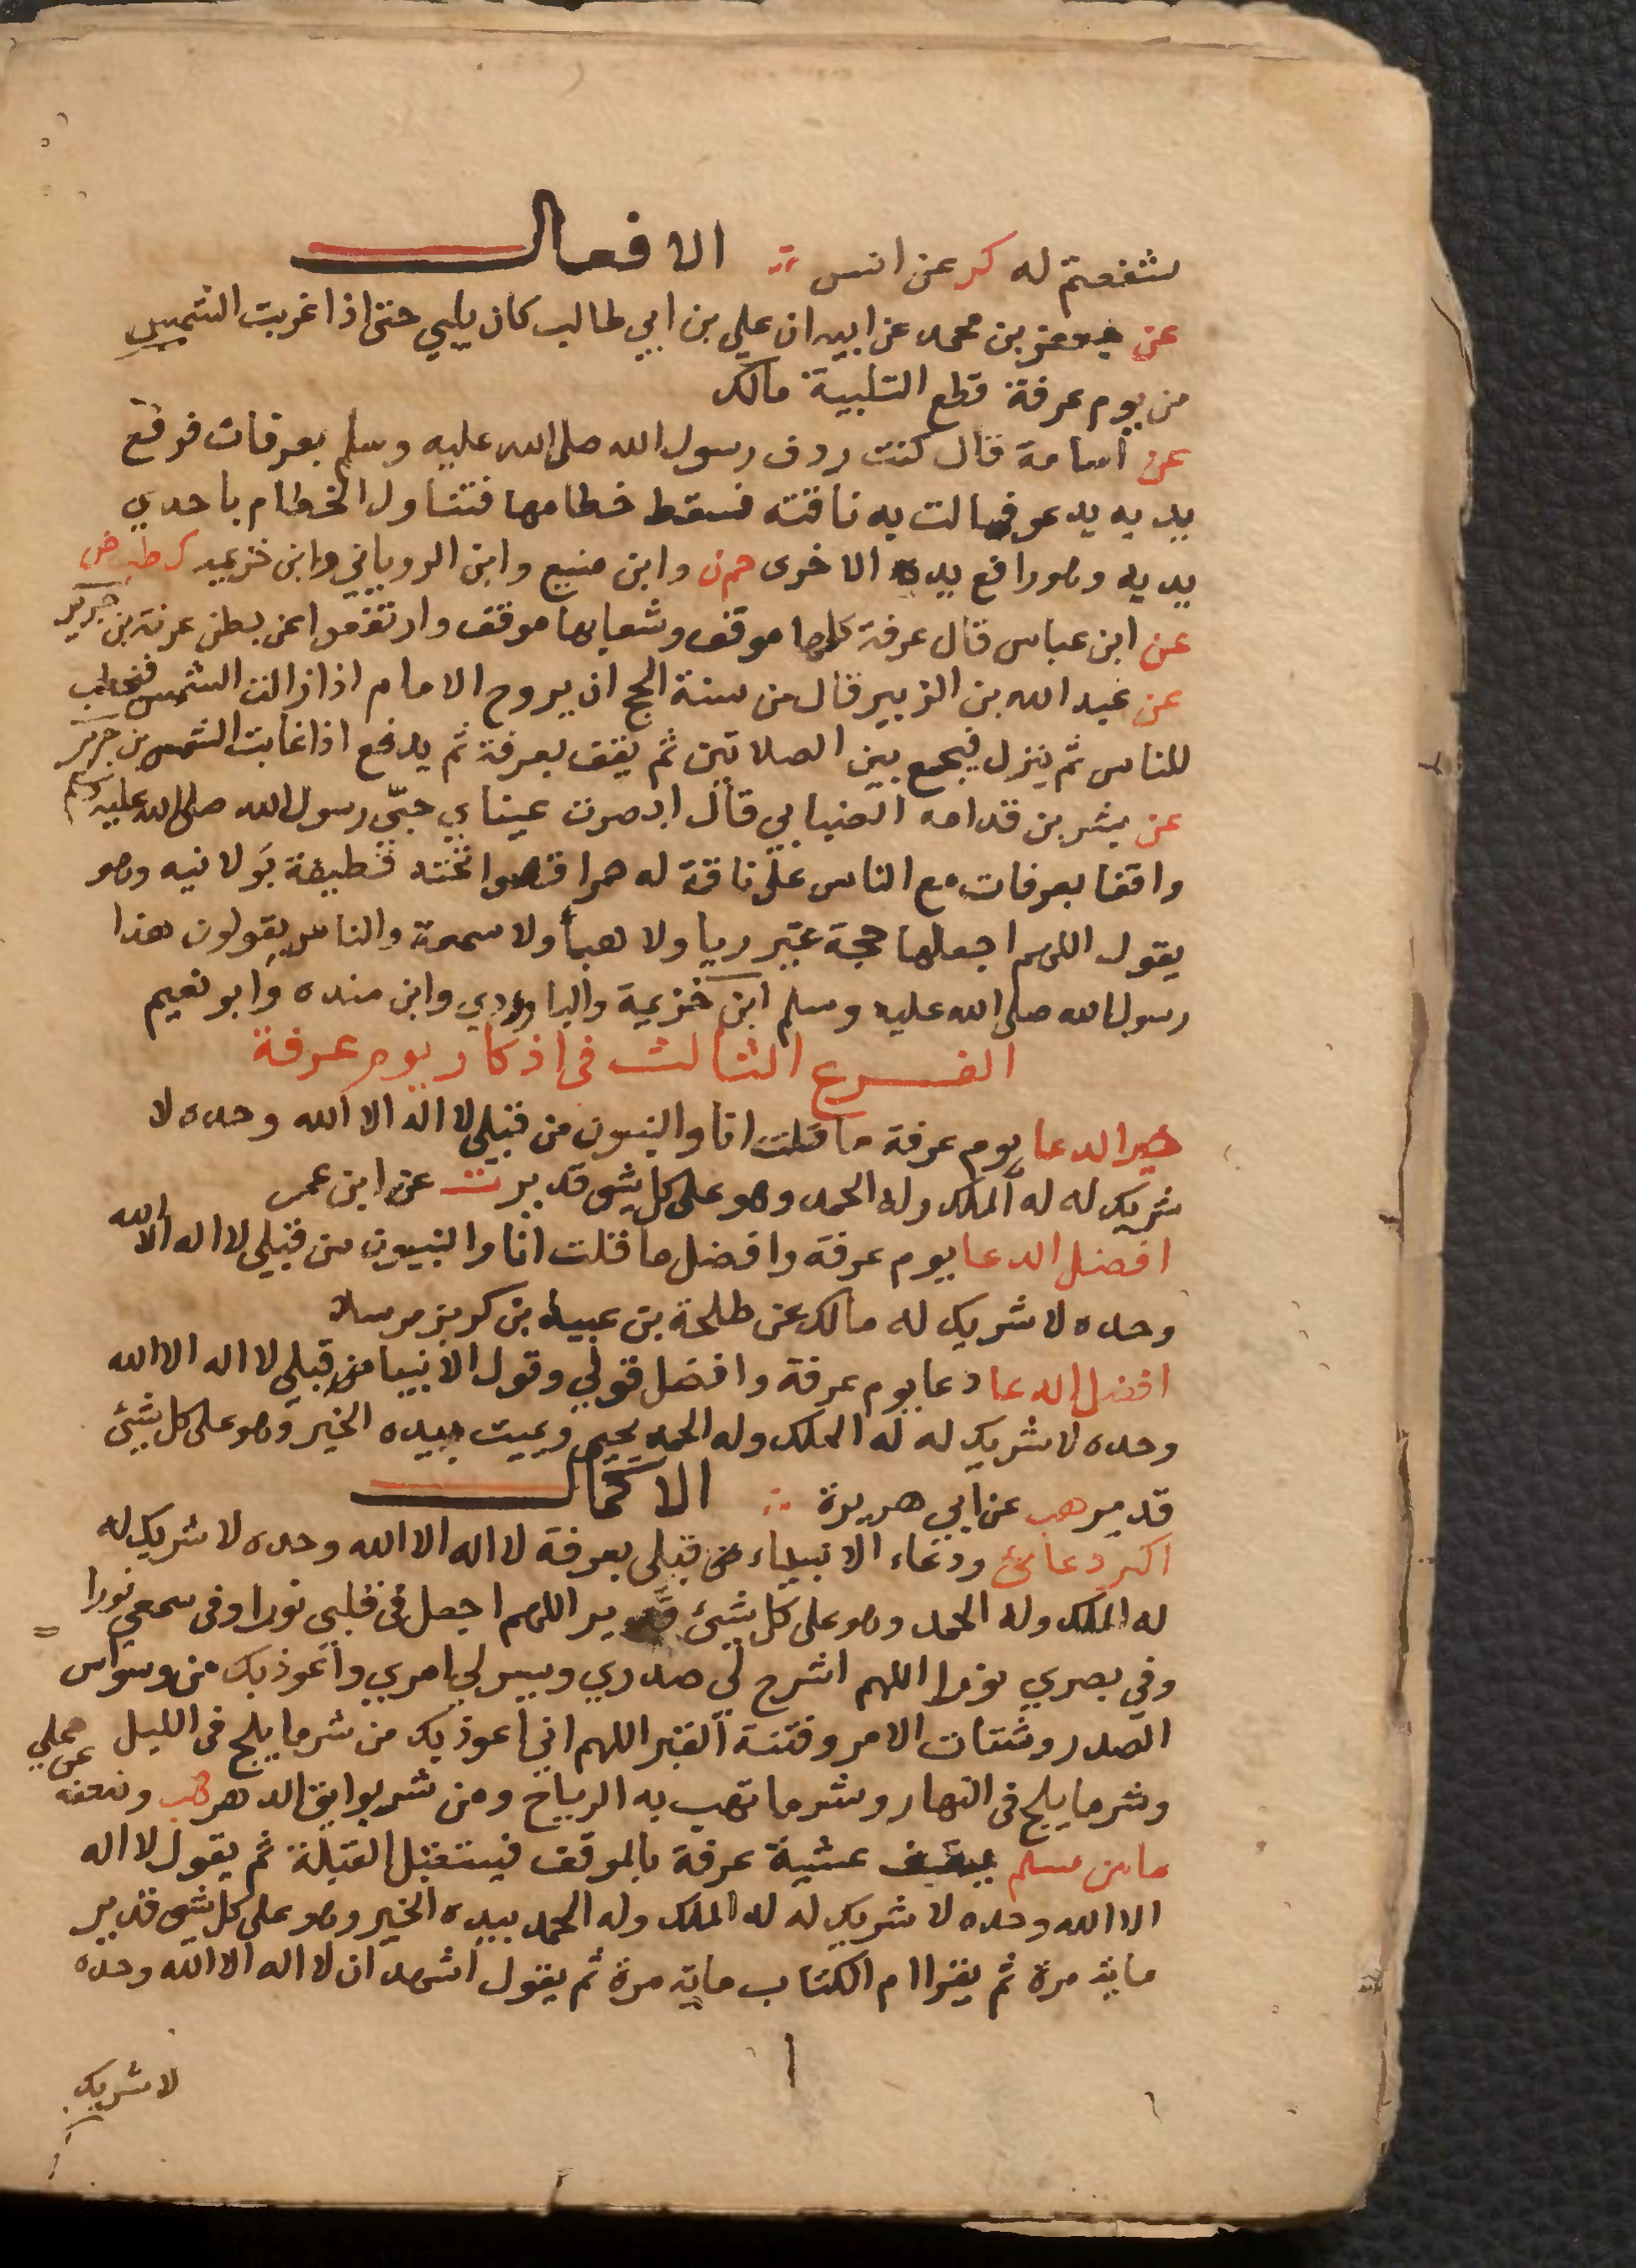 شفعتم له كر عن انس ؞ الافعال
عن جعفر بن محمد عن ابيه ان علي بن ابي طالب كان يلبي حتى اذا غربت الشمس
من يوم عرفة قطع التلبية مالك
عن أسامة قال كنت ردف رسول الله صلى الله عليه وسلم بعرفات فرفع
يديه يدعو فمالت به ناقته فسقط خطامها فتناول الخطام باحدي
يديه وهو رافع يده الاخرى حم ن وابن منيع وابن الروياني وابن خزيمه ك طب ض
عن ابن عباس قال عرفة كلها موقف وشعابها موقف وارتفعوا عن بطن عرنة بن جرير
عن عبد الله بن الزبير قال من سنة الحج ان يروح الامام اذا زالت الشمس فيخطب
للناس ثم ينزل فيجمع بين الصلاتين ثم يقف بعرفة ثم يدفع اذا غابت الشمس بن جرير
عن بشر بن قدامه الضبابي قال ابصرت عيناي حبّي رسول الله صلى الله عليه وسلم
واقفا بعرفات مع الناس على ناقة له حمرا قصوا تحته قطيفة بَولانيه وهو
يقول اللهم اجعلها حجة غير ريا ولا هبأ ولا سمعة والناس يقولون هذا
رسول الله صلى الله عليه وسلم ابن خزيمة والباوردي وابن منده وابو نعيم
الفرع الثالث فى اذكار يوم عرفة
خير الدعا يوم عرفة ما قلت انا والنبيون من قبلي لا اله الا الله وحده لا
شريك له له الملك وله الحمد وهو على كل شى قدير ت عن ابن عمر
افضل الدعا يوم عرفة وافضل ما قلت انا والنبيون من قبلي لا اله الا الله
وحده لا شريك له مالك عن طلحة بن عبيد بن كريز مرسلا
افضل الدعا دعا يوم عرفة وافضل قولي وقول الانبيا من قبلي لا اله الا الله
وحده لا شريك له له الملك وله الحمد يحيى ويميت بيده الخير وهو على كل شيئ
قدير هب عن ابي هريرة ؞ الاكمال
اكبر دعائئ ودعاء الانبياء من قبلى بعرفة لا اله الا الله وحده لا شريك له
له الملك وله الحمد وهو على كل شيئ قدير اللهم اجعل فى قلبي نورا وفى سمعي نورا
وفي بصري نورا اللهم اشرح لي صدري ويسر لي امري واعوذ بك من وسواس
الصدر وشتات الامر وفتنة القبر اللهم اني اعوذ بك من شر ما يلج فى الليل
وشر ما يلج فى النهار وشر ما تهب به الرياح ومن شر بوايق الدهر هب وضعفه عن علي
ما من مسلم يقف عشية عرفة بالموقف فيستقبل القبلة ثم يقول لا اله
الا الله وحده لا شريك له له الملك وله الحمد بيده الخير وهو على كل شى قدير
ماية مرة ثم يقرا ام الكتاب ماية مرة ثم يقول اشهد ان لا اله الا الله وحده
لا شريك